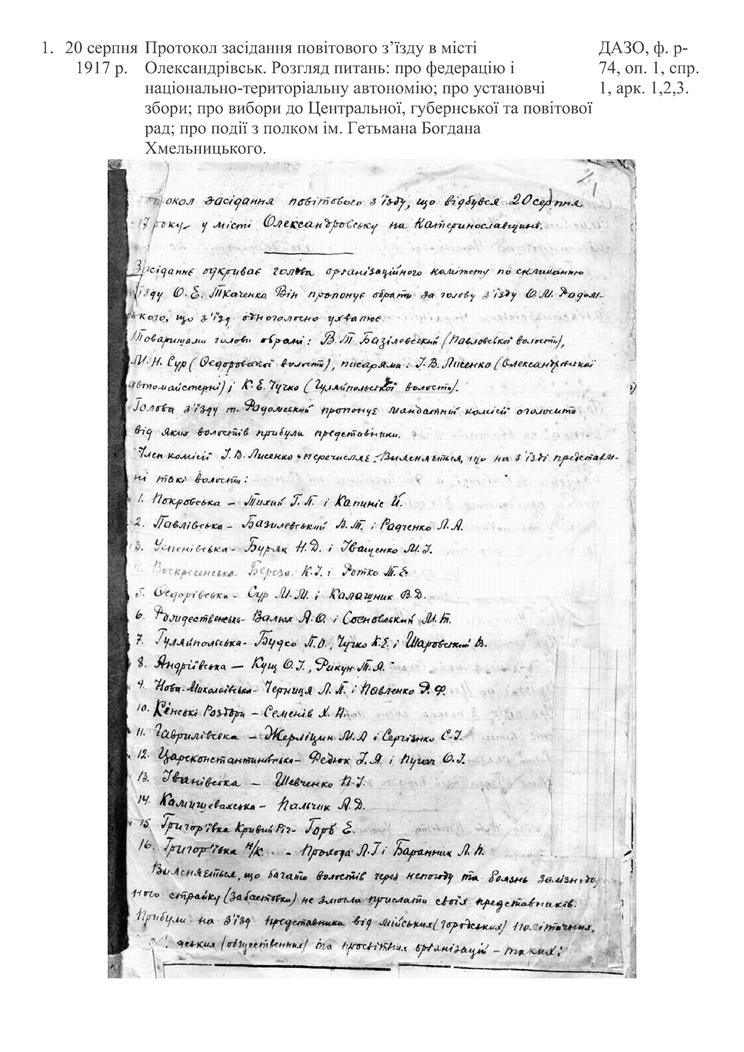 1. 20 серпня 1917 р.
Протокол засідання повітового з’їзду в місті
Олександрівськ. Розгляд питань: про федерацію і
національно-територіальну автономію; про установчі
збори; про вибори до Центральної, губернської та повітової
рад; про події з полком ім. Гетьмана Богдана
Хмельницького.
ДАЗО, ф. р-
74, оп. 1, спр.
1, арк. 1,2,3.
засідання повітового з'їзду, що відбувся 20 серпня
17 року у місті Олександровську на Катеринославщині.
Засіданнє одкриває голова організаційного комітету по скликанню
з'їзду О. Е. Ткаченко Він пропонує обрати за голову з'їзду О. М. Радом-
ського, що з'їзд одноголосно ухвалює.
Товаришами голови обрані: В. Т. Базілевський (Павловської волости),
М. Н. Сур (Федоровської волости), писарями: І. В. Лисенко (Олександрівської
автомайстерні) і К. Е. Чучко (Гуляйпольської волости).
Голова з'їзду т. Радомський пропонує мандатній комісії оголосити
від яких волостів прибули представники.
Член комісії І. В. Лисенко перечисляє. Виясняється, що на з'їзді представле-
ні такі волости:
1. Покровська – Тихий Г. П. і Капиніс Й.
2. Павлівська – Базилевський В. Т. і Радченко Л. А.
3. Успенівська – Буряк Н. Д. і Іващенко М. І.
4. Воскресенська Береза К. І. і Ротко Т. Е.
5. Федорівська – Сур М. М. і Калашник В. Д.
6. Рождественська – Валюх А. О. і Сосновський М. Т.
7. Гуляйпольська – Будко П. О., Чучко К. Е. і Шаровский В.
8. Андріївська – Кущ О. І., Рикун Т. А.
9. Ново-Миколаївська – Черниця Л. П. і Павленко Р. Ф.
10. Кінські Роздори – Семенів Х. П.
11. Гаврилівська – Жерліцин М. А і Сергієнко Є. І.
12. Царсконстантинівська – Федюк І. Я. і Пугач О. І.
13. Іванівська – Шевченко П. І.
14. Камишевахська – Пальчик А. Д.
15 Григор'ївка Кривий Ріг – Горб Е.
16. Григор'ївка н/к. – Прохода Л. Г і Баранник Л. П.
Виясняється, що багато волостів через непогоду та боязнь залізнодорож-
ного страйку (забастовки) не змогли прислати своїх представників.
Прибули на з'їзд представники від міських (городських) політичних,
дських (общественних) та просвітних організацій – таких: